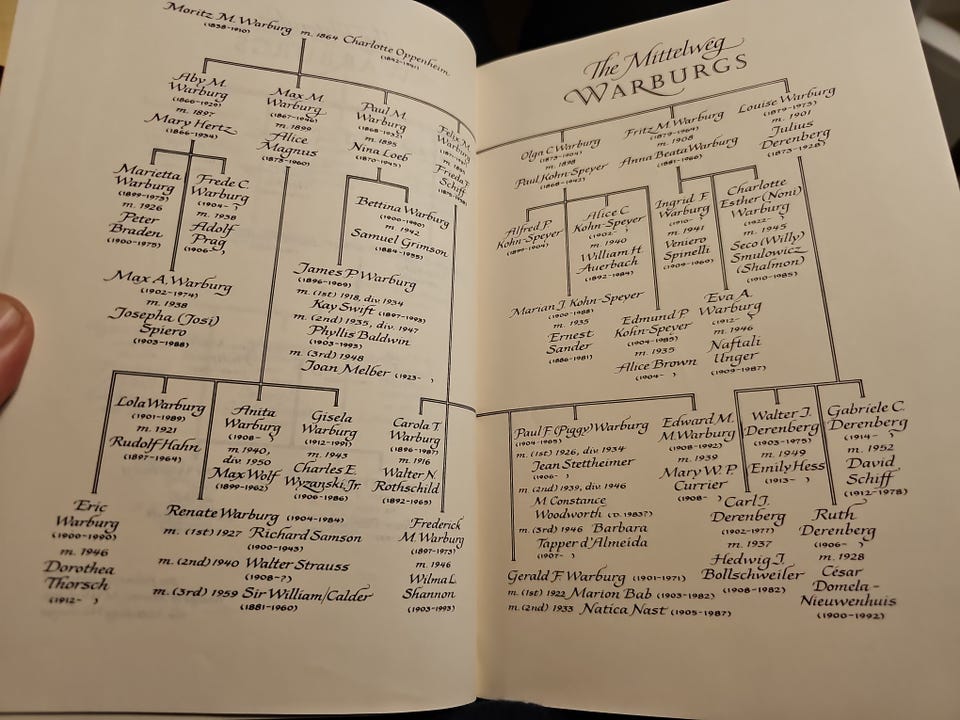 Moritz M. Warburg m. 1864 Charlotte Oppenheim
(1838-1910) (1842-1921)
Aby M.
Warburg
(1866-1929)
m. 1897
Mary Hertz
(1866-1934)
Max M.
Warburg
(1867-1946)
m. 1899
Alice
Magnus
(1873-1960)
Paul M.
Warburg
(1868-1932)
m. 1895
Nina Loeb
(1870-1945)
Felix M.
Frieda
Schiff
Marietta
Warburg
(1899-1973)
m. 1926
Peter
Braden
(1900-1975)
Frede C.
Warburg
(1904- )
m. 1938
Adolf
Prag
(1906- )
Max A. Warburg
(1902-1974)
m. 1938
Josepha (Josi)
Spiero
(1903-1988)
Bettina Warburg
(1900-1990)
m. 1942
Samuel Grimson
(1884-1955)
James P. Warburg
(1896-1969)
m. (1st) 1918, div. 1934
Kay Swift (1897-1993)
m. (2nd) 1935, div. 1947
Phyllis Baldwin
(1903-1993)
m. (3rd) 1948
Joan Melber (1923- )
Lola Warburg
(1901-1989)
m. 1921
Rudolf Hahn
(1897-1964)
Anita
Warburg
(1908- )
m. 1940,
div. 1950
Max Wolf
(1899-1962)
Gisela
Warburg
(1912-1991)
m. 1943
Charles E.
Wyzanski, Jr.
(1906-1986)
Carola T.
Warburg
(1896-1987)
m. 1916
Walter N.
Rothschild
(1892-1965)
Eric
Warburg
(1900-1990)
m. 1946
Dorothea
Thorsch
(1912- )
Renate Warburg (1904-1984)
m. (1st) 1927 Richard Samson
(1900-1943)
m. (2nd) 1940 Walter Strauss
(1908-?)
m. (3rd) 1959 Sir William Calder
(1881-1960)
Frederick
M. Warburg
(1897-1973)
m. 1946
Wilma L.
Shannon
(1903-1993)
The Mittelweg
WARBURGS
Olga C. Warburg
(1873-1904)
m. 1898
Paul Kohn-Speyer
(1868-1942)
Fritz M. Warburg
(1879-1964)
m. 1908
Anna Beata Warburg
(1881-1966)
Louise Warburg
(1879-1973)
m. 1901
Julius
Derenberg
(1873-1928)
Alfred P.
Kohn-Speyer
(1899-1904)
Alice C.
Kohn-Speyer
(1902- )
m. 1940
William H.
Auerbach
(1892-1984)
Ingrid F.
Warburg
(1910- )
m. 1941
Veniero
Spinelli
(1909-1969)
Charlotte
Esther (Noni)
Warburg
(1922- )
m. 1945
Seco (Willy)
Smulowicz
(Shalmon)
(1910-1985)
Marian J. Kohn-Speyer
(1900-1988)
m. 1935
Ernest
Sander
(1886-1981)
Edmund P.
Kohn-Speyer
(1904-1985)
m. 1935
Alice Brown
(1904- )
Eva A.
Warburg
(1912- )
m. 1946
Naftali
Unger
(1909-1987)
Paul F. (Piggy) Warburg
(1904-1965)
m. (1st) 1926, div. 1934
Jean Stettheimer
(1906- )
m. (2nd) 1939, div. 1946
M. Constance
Woodworth (D. 1983?)
m. (3rd) 1946 Barbara
Tapper d'Almeida
(1907- )
Edward M.
M. Warburg
(1908-1992)
m. 1939
Mary W. P.
Currier
(1908- )
Walter J.
Derenberg
(1903-1975)
m. 1949
Emily Hess
(1913- )
Gabriele C.
Derenberg
(1914- )
m. 1952
David
Schiff
(1912-1978)
Gerald F. Warburg (1901-1971)
m. (1st) 1922 Marion Bab (1903-1982)
m. (2nd) 1933 Natica Nast (1905-1987)
Carl J.
Derenberg
(1902-1977)
m. 1937
Hedwig J.
Bollschweiler
(1908-1982)
Ruth
Derenberg
(1906- )
m. 1928
César
Domela-
Nieuwenhuis
(1900-1992)